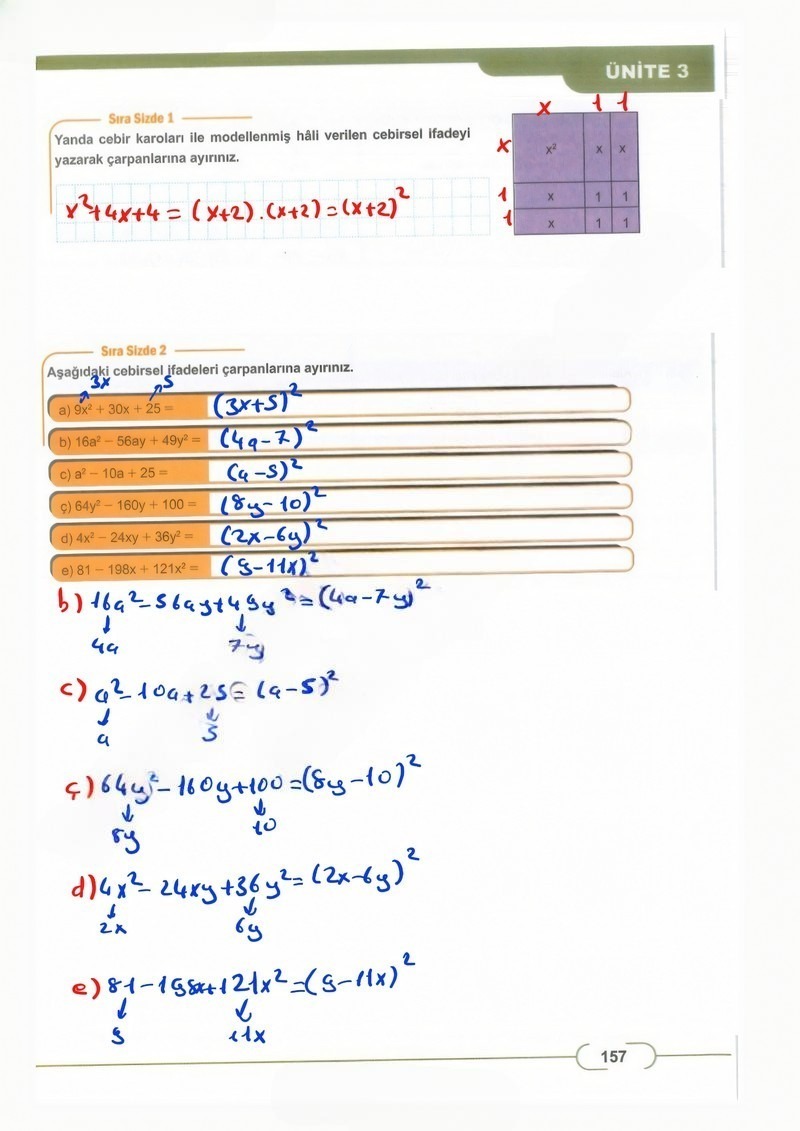 ÜNİTE 3
Sıra Sizde 1
Yanda cebir karoları ile modellenmiş hâli verilen cebirsel ifadeyi
yazarak çarpanlarına ayırınız.
x²+4x+4 = (x+2).(x+2)=(x+2)²
x 1 1
x x² x x
1 x 1 1
1 x 1 1
Sıra Sizde 2
Aşağıdaki cebirsel ifadeleri çarpanlarına ayırınız.
3x 5
a) 9x² + 30x + 25 = (3x+5)²
b) 16a² − 56ay + 49y² = (4a-7)²
c) a² − 10a + 25 = (a-5)²
ç) 64y² − 160y + 100 = (8y-10)²
d) 4x² − 24xy + 36y² = (2x-6y)²
e) 81 − 198x + 121x² = (9-11x)²
b) 16a²-56ay+49y²=(4a-7y)²
4a 7y
c) a²-10a+25=(a-5)²
a 5
ç) 64y²-160y+100=(8y-10)²
8y 10
d) 4x²-24xy+36y²=(2x-6y)²
2x 6y
e) 81-198x+121x²=(9-11x)²
9 11x
157